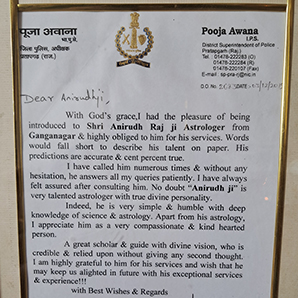 पूजा अवाना
भा.पु.से.
जिला पुलिस, अधीक्षक
प्रतापगढ़ (राज.)
Pooja Awana
I.P.S.
District Superintendent of Police
Pratapgarh (Raj.)
Tel.: 01478-222263 (O)
01478-222284 (R)
01478-220107 (Fax)
D.O. No.
Dear Anirudhji,
With God's grace,I had the pleasure of being
introduced to Shri Anirudh Raj ji Astrologer from
Ganganagar & highly obliged to him for his services. Words
would fall short to describe his talent on paper. His
predictions are accurate & cent percent true.
I have called him numerous times & without any
hesitation, he answer all my queries patiently. I have always
felt assured after consulting him. No doubt "Anirudh ji" is
very talented astrologer with true divine personality.
Indeed, he is very simple & humble with deep
knowledge of science & astrology. Apart from his astrology,
I appreciate him as a very compassionate & kind hearted
person.
A great scholar & guide with divine vision, who is
credible & relied upon without giving any second thought.
I am highly grateful to him for his services and wish that he
may keep us alighted in future with his exceptional services
& experience!!!
with Best Wishes & Regards